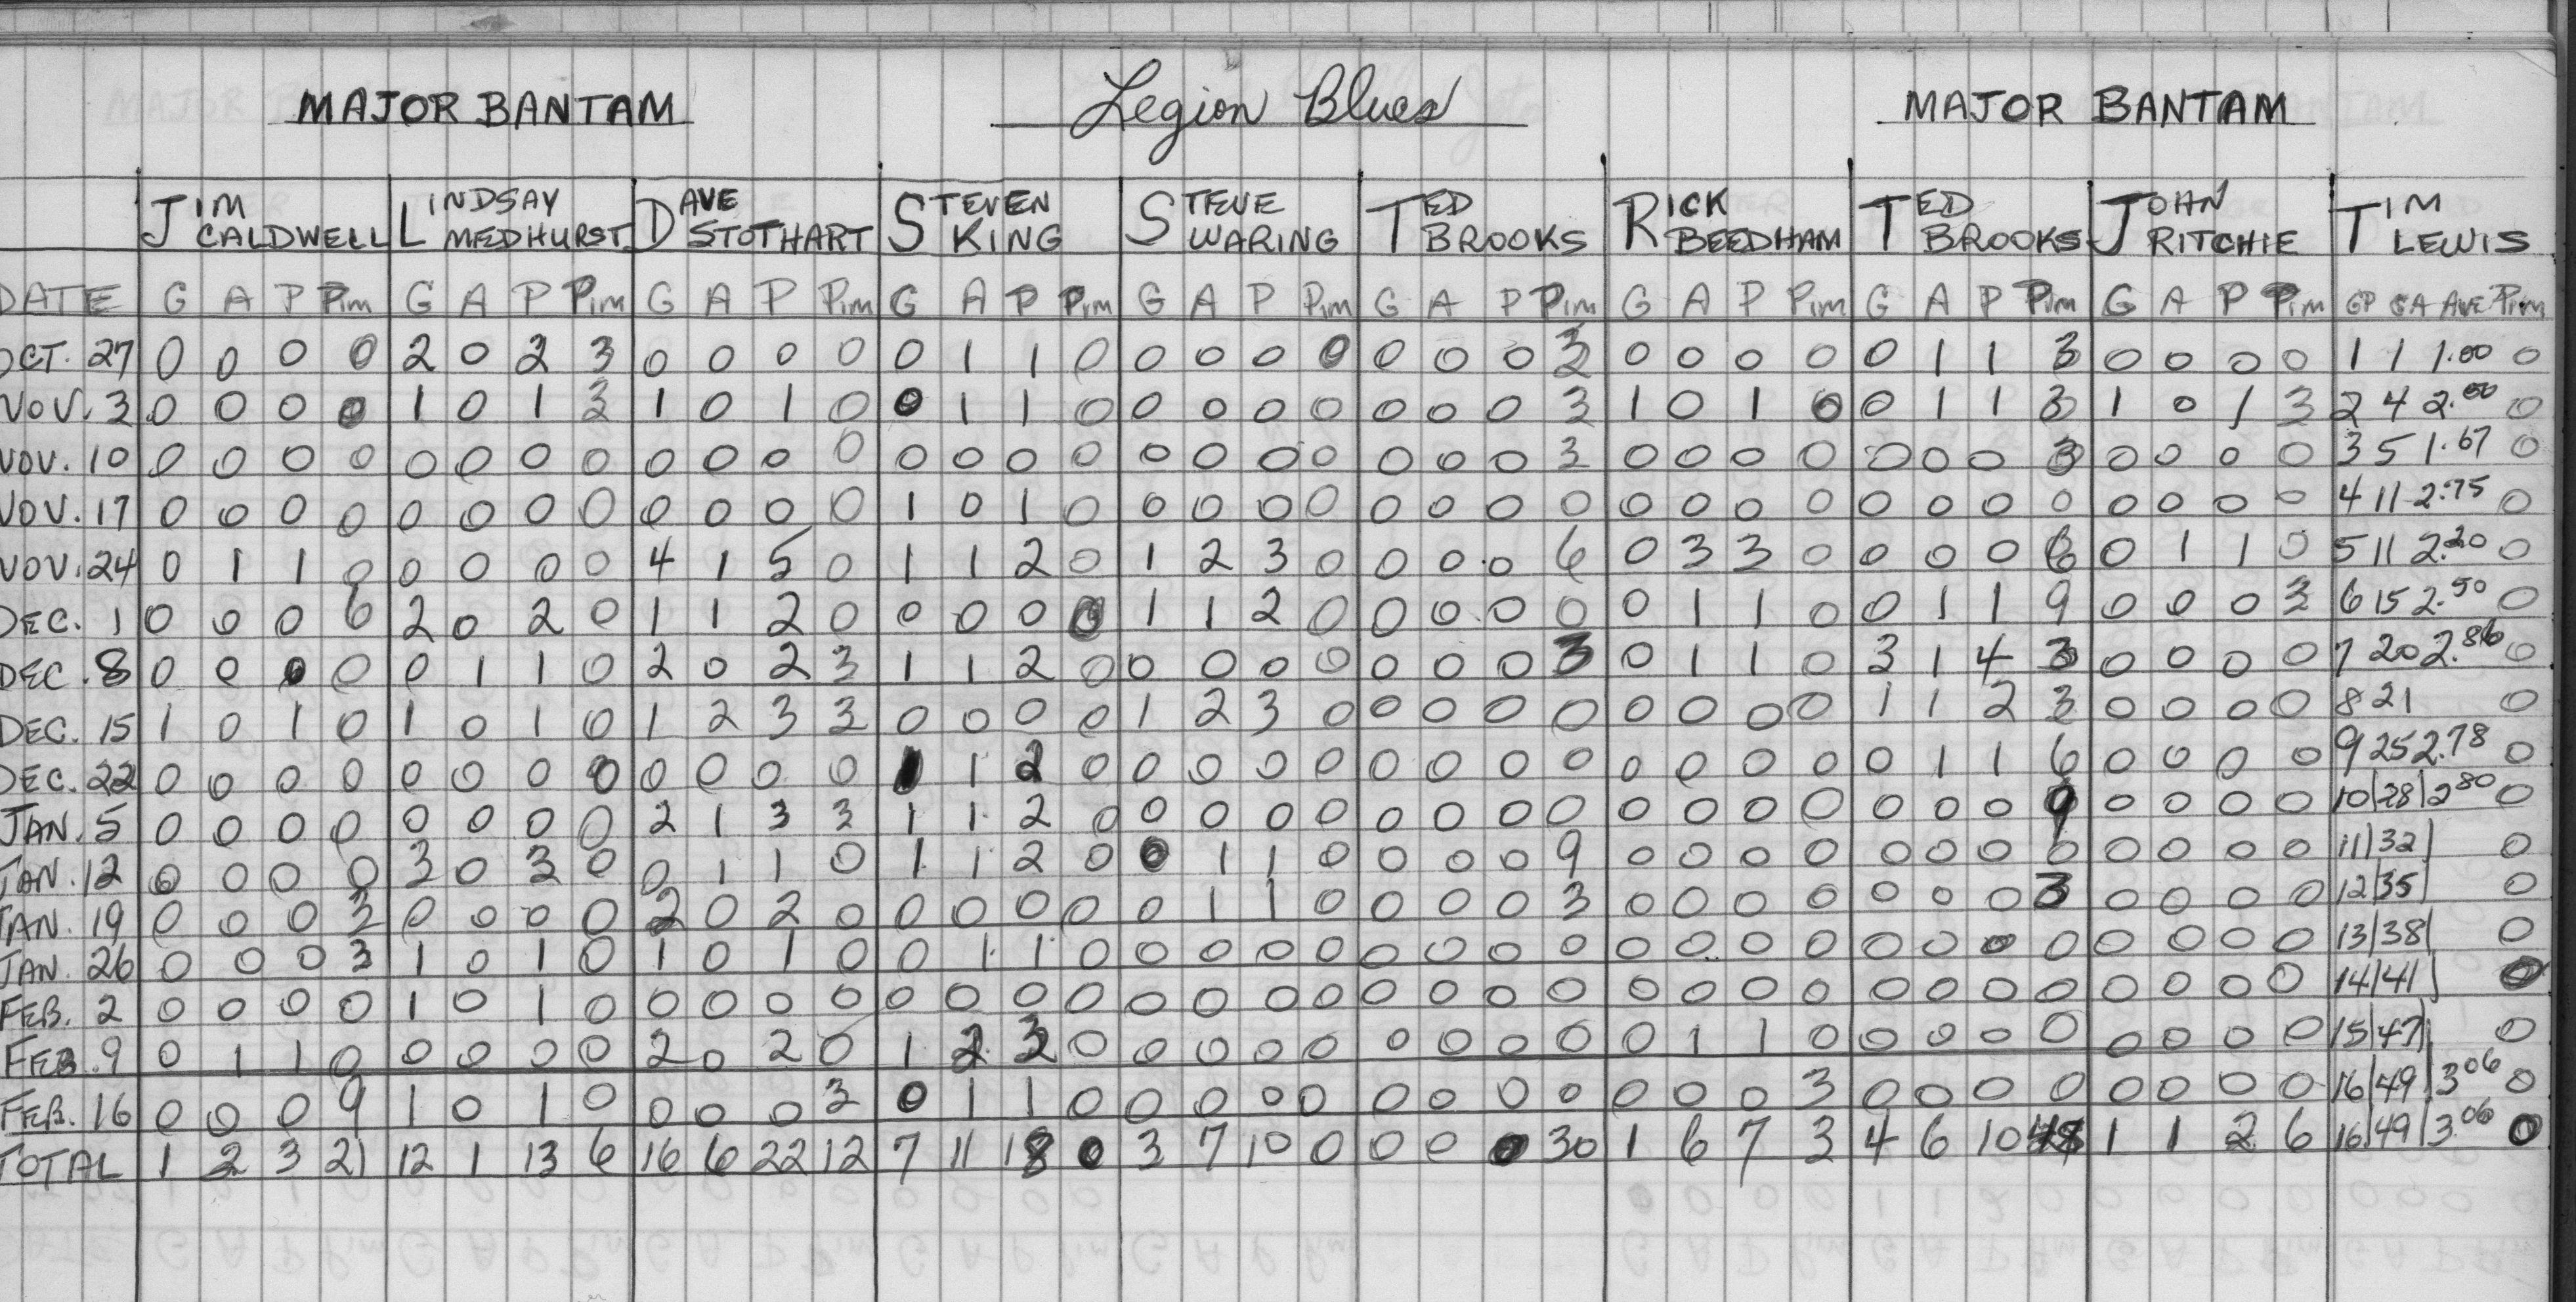 MAJOR BANTAM Legion Blues MAJOR BANTAM
JIM LINDSAY DAVE STEVEN STEVE TED RICK TED JOHN TIM
CALDWELL MEDHURST STOTHART KING WARING BROOKS BEEDHAM BROOKS RITCHIE LEWIS
DATE G A P Pim G A P Pim G A P Pim G A P Pim G A P Pim G A P Pim G A P Pim G A P Pim G A P Pim GP GA AVE Pim
OCT. 27 0 0 0 0 2 0 2 3 0 0 0 0 0 1 1 0 0 0 0 0 0 0 0 3 0 0 0 0 0 1 1 3 0 0 0 0 1 1 1.00 0
NOV. 3 0 0 0 0 1 0 1 3 1 0 1 0 0 1 1 0 0 0 0 0 0 0 0 3 1 0 1 0 0 1 1 3 1 0 1 3 2 4 2.00 0
NOV. 10 0 0 0 0 0 0 0 0 0 0 0 0 0 0 0 0 0 0 0 0 0 0 0 3 0 0 0 0 0 0 0 3 0 0 0 0 3 5 1.67 0
NOV. 17 0 0 0 0 0 0 0 0 0 0 0 0 1 0 1 0 0 0 0 0 0 0 0 0 0 0 0 0 0 0 0 0 0 0 0 0 4 11 2.75 0
NOV. 24 0 1 1 0 0 0 0 0 4 1 5 0 1 1 2 0 1 2 3 0 0 0 0 6 0 3 3 0 0 0 0 6 0 1 1 0 5 11 2.20 0
DEC. 1 0 0 0 6 2 0 2 0 1 1 2 0 0 0 0 0 1 1 2 0 0 0 0 0 0 1 1 0 0 1 1 9 0 0 0 3 6 15 2.50 0
DEC. 8 0 0 0 0 0 1 1 0 2 0 2 3 1 1 2 0 0 0 0 0 0 0 0 3 0 1 1 0 3 1 4 3 0 0 0 0 7 20 2.86 0
DEC. 15 1 0 1 0 1 0 1 0 1 2 3 3 0 0 0 0 1 2 3 0 0 0 0 0 0 0 0 0 1 1 2 3 0 0 0 0 8 21 0
DEC. 22 0 0 0 0 0 0 0 0 0 0 0 0 1 1 2 0 0 0 0 0 0 0 0 0 0 0 0 0 0 1 1 6 0 0 0 0 9 25 2.78 0
JAN. 5 0 0 0 0 0 0 0 0 2 1 3 3 1 1 2 0 0 0 0 0 0 0 0 0 0 0 0 0 0 0 0 9 0 0 0 0 10|28|2 80 0
JAN. 12 0 0 0 0 3 0 3 0 0 1 1 0 1 1 2 0 0 1 1 0 0 0 0 9 0 0 0 0 0 0 0 0 0 0 0 0 11|32| 0
JAN. 19 0 0 0 3 0 0 0 0 2 0 2 0 0 0 0 0 0 1 1 0 0 0 0 3 0 0 0 0 0 0 0 3 0 0 0 0 12|35| 0
JAN. 26 0 0 0 3 1 0 1 0 1 0 1 0 0 1 1 0 0 0 0 0 0 0 0 0 0 0 0 0 0 0 0 0 0 0 0 0 13|38| 0
FEB. 2 0 0 0 0 1 0 1 0 0 0 0 0 0 0 0 0 0 0 0 0 0 0 0 0 0 0 0 0 0 0 0 0 0 0 0 0 14|41| 0
FEB. 9 0 1 1 0 0 0 0 0 2 0 2 0 1 2 3 0 0 0 0 0 0 0 0 0 0 1 1 0 0 0 0 0 0 0 0 0 15|47| 0
FEB. 16 0 0 0 9 1 0 1 0 0 0 0 3 0 1 1 0 0 0 0 0 0 0 0 0 0 0 0 3 0 0 0 0 0 0 0 0 16|49|3 06 0
TOTAL 1 2 3 21 12 1 13 6 16 6 22 12 7 11 18 0 3 7 10 0 0 0 0 30 1 6 7 3 4 6 10 48 1 1 2 6 16|49|3.06 0